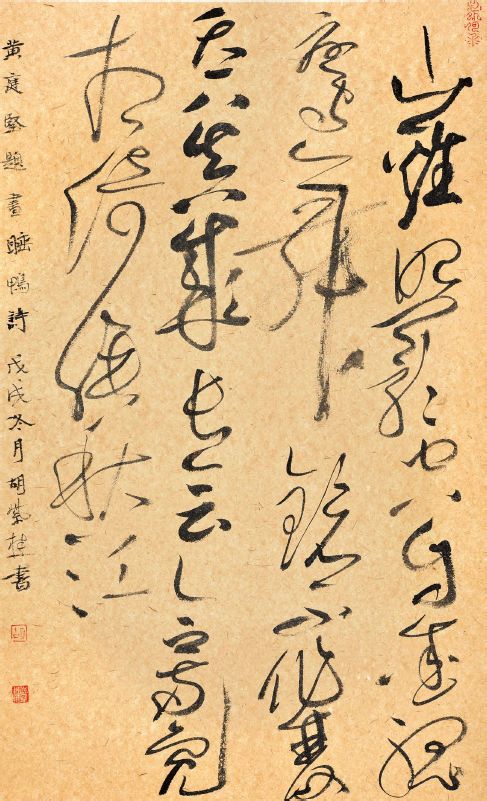 山雞照影空自愛孤
鸞舞鏡不作雙
天下真成長會合兩鳧
相倚睡秋江
黄庭堅題畫睡鴨詩 戊戌冬月胡紫桂書